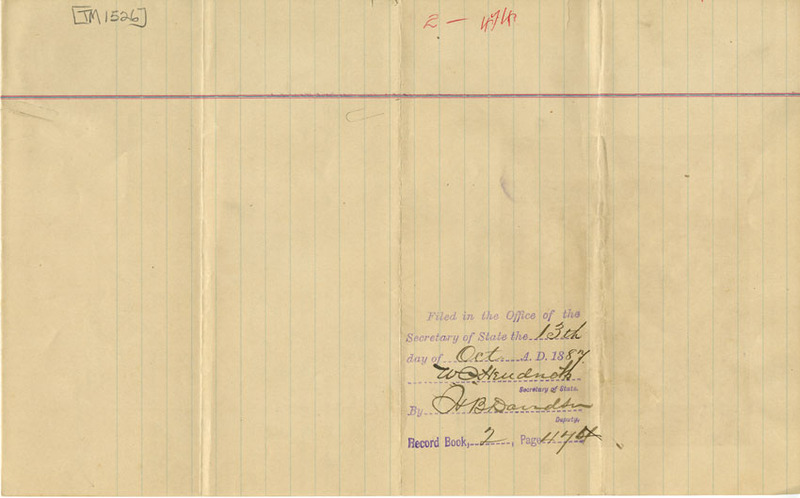 [TM 1526]
2 — 474
Filed in the Office of the
Secretary of State the 13th
day of Oct A. D. 1887.
W C Hendricks
Secretary of State.
By H B Davidson
Deputy.
Record Book, 2, Page 474